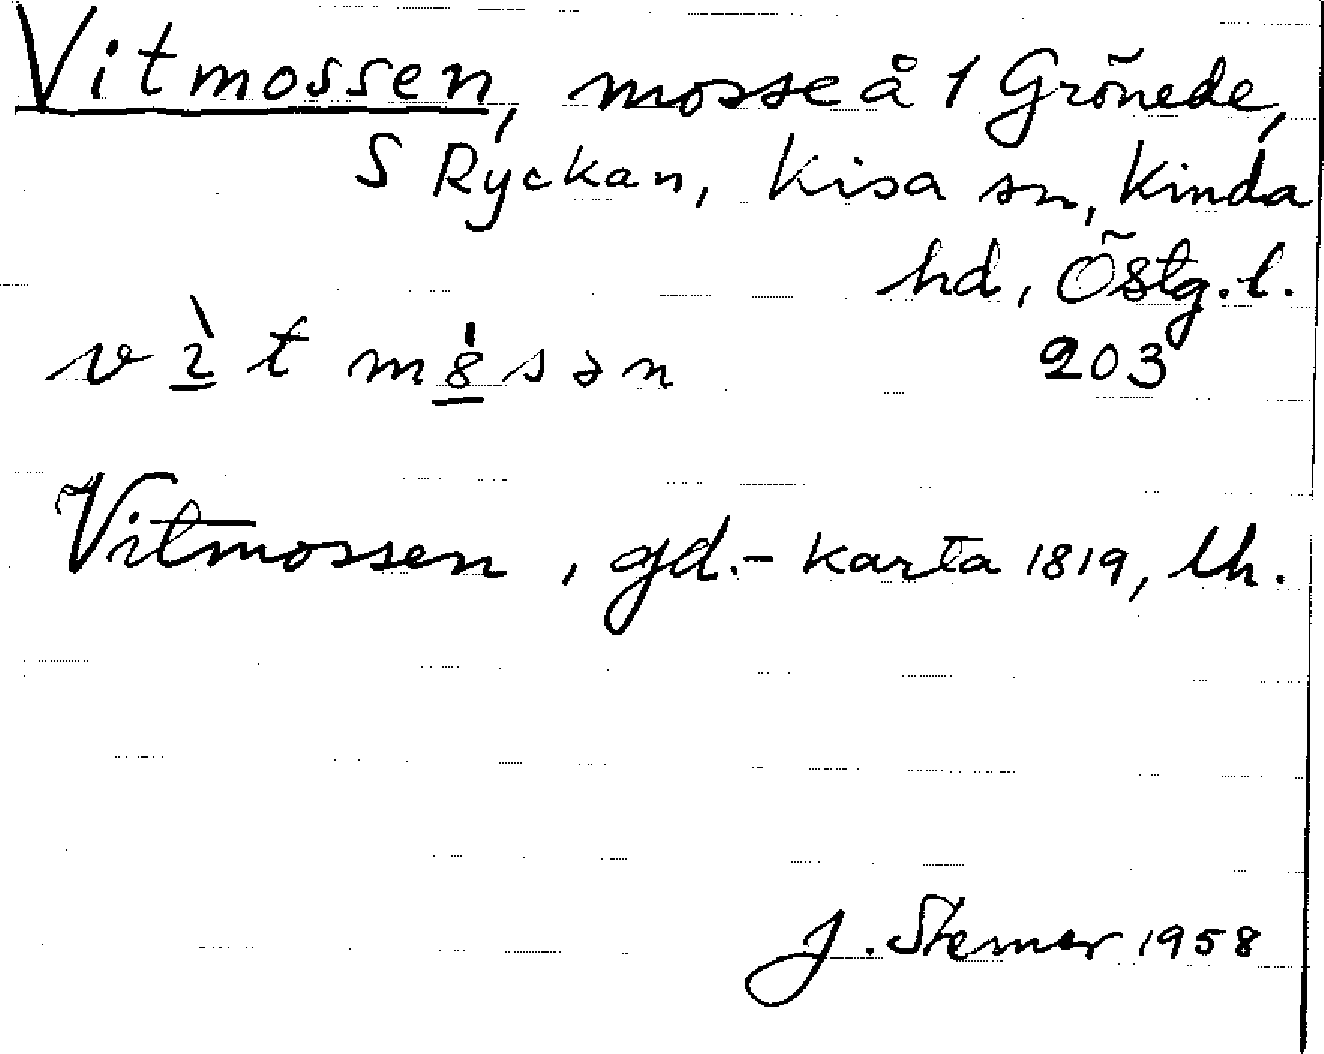 Vitmossen, mosse å 1 Grönede,
S Ryckan, Kisa sn, Kinda
hd, Östg. l.
v ì t m 8̍ s ə n 203
Vitmossen, gd.- karta 1819, lh.
J. Sterner 1958